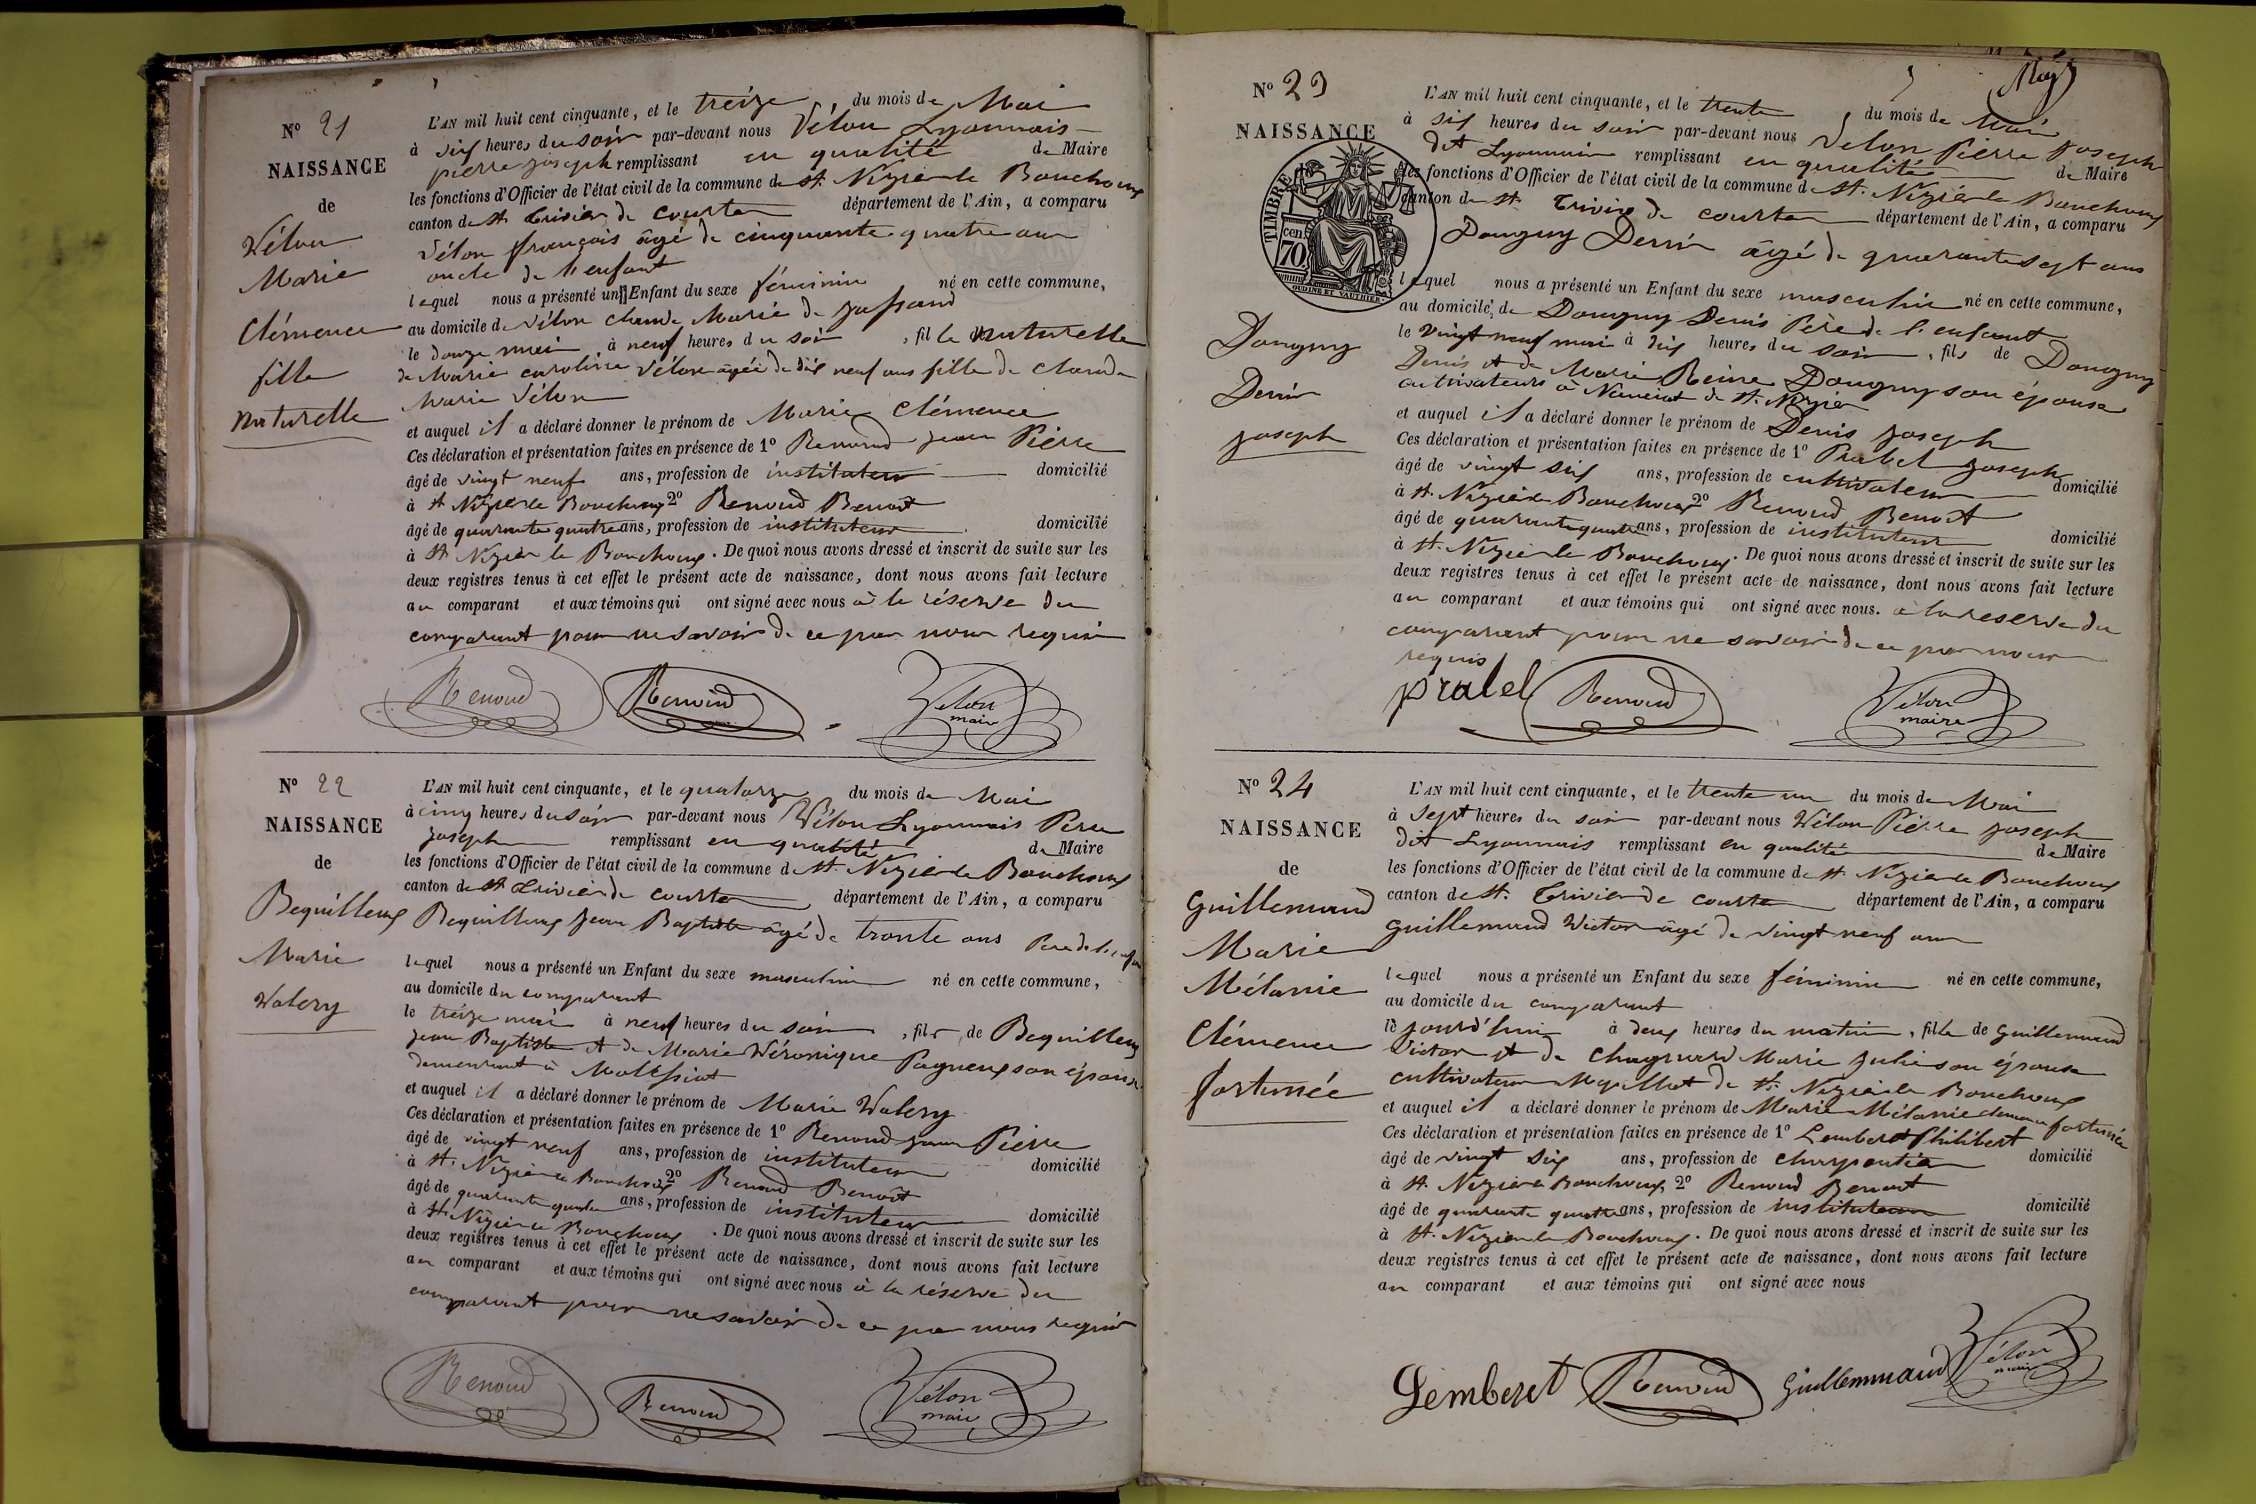 N° 21
NAISSANCE
de
Vélon
Marie
Clémence
fille
naturelle
L'AN mil huit cent cinquante, et le treize du mois de Mai
à six heures du soir par-devant nous Vélon Lyonnais
pierre joseph remplissant en qualité de Maire
les fonctions d'Officier de l'état civil de la commune de St. Nizier le Bouchoux
canton de St. Trivier de courtes département de l'Ain, a comparu
Vélon françois âgé de cinquante quatre ans
oncle de l'enfant
lequel nous a présenté un Enfant du sexe féminin né en cette commune,
au domicile de Vélon Claude Marie de
le douze mai à neuf heures du soir, fille naturelle
de Marie caroline Vélon agée de dix neuf ans fille de claude
Marie Vélon
et auquel il a déclaré donner le prénom de Marie Clémence
Ces déclaration et présentation faites en présence de 1° Renoud jean Pierre
âgé de vingt neuf ans, profession de instituteur domicilié
à St Nizier le Bouchoux 2° Renoud Benoit
âgé de quarante quatre ans, profession de instituteur domicilié
à St Nizier le Bouchoux. De quoi nous avons dressé et inscrit de suite sur les
deux registres tenus à cet effet le présent acte de naissance, dont nous avons fait lecture
au comparant et aux témoins qui ont signé avec nous à la réserve du
comparant pour ne savoir de ce par nous requis
Renoud Renoud Vélon
maire
N° 22
NAISSANCE
de
Bequilleux
Marie
Valery
L'AN mil huit cent cinquante, et le quatorze du mois de Mai
à cinq heures du soir par-devant nous Vélon Lyonnais Pierre
joseph remplissant en qualité de Maire
les fonctions d'Officier de l'état civil de la commune de St. Nizier le Bouchoux
canton de St Trivier de courtes département de l'Ain, a comparu
Bequilleux jean Baptiste âgé de trente ans Pere de l'enfant
lequel nous a présenté un Enfant du sexe masculin né en cette commune,
au domicile du comparant
le treize mai à neuf heures du soir, fils de Bequilleux
jean Baptiste et de Marie Véronique Pagneux son épouse
demeurant à
et auquel il a déclaré donner le prénom de Marie Valery
Ces déclaration et présentation faites en présence de 1° Renoud jean Pierre
âgé de vingt neuf ans, profession de instituteur domicilié
à St. Nizier le Bouchoux 2° Renoud Benoit
âgé de quarante quatre ans, profession de instituteur domicilié
à St. Nizier le Bouchoux. De quoi nous avons dressé et inscrit de suite sur les
deux registres tenus à cet effet le présent acte de naissance, dont nous avons fait lecture
au comparant et aux témoins qui ont signé avec nous à la réserve du
comparant pour ne savoir de ce par nous requis
Renoud Renoud Vélon
maire
N° 23
NAISSANCE
TIMBRE
70 cen
OUDINE ET VAUTHIER
Douguy
Denis
joseph
L'AN mil huit cent cinquante, et le trente du mois de Mai
à six heures du soir par-devant nous Velon Pierre joseph
dit Lyonnais remplissant en qualité de Maire
les fonctions d'Officier de l'état civil de la commune de St. Nizier le Bouchoux
canton de St. Trivier de courtes département de l'Ain, a comparu
Douguy Denis âgé de quarante sept ans
lequel nous a présenté un Enfant du sexe masculin né en cette commune,
au domicile de Douguy Denis Père de l'enfant
le vingt neuf mai à dix heures du soir, fils de Douguy
Denis et de Marie Reine Douguy son épouse
cultivateurs à de St. Nizier
et auquel il a déclaré donner le prénom de Denis joseph
Ces déclaration et présentation faites en présence de 1° Pralel joseph
âgé de vingt six ans, profession de cultivateur domicilié
à St. Nizier le Bouchoux 2° Renoud Benoit
âgé de quarante quatre ans, profession de instituteur domicilié
à St. Nizier le Bouchoux. De quoi nous avons dressé et inscrit de suite sur les
deux registres tenus à cet effet le présent acte de naissance, dont nous avons fait lecture
au comparant et aux témoins qui ont signé avec nous. à la reserve du
comparant pour ne savoir de ce par nous
requis
pralel Renoud Vélon
maire
N° 24
NAISSANCE
de
Guillemaud
Marie
Mélanie
Clémence
fortunée
L'AN mil huit cent cinquante, et le trente un du mois de Mai
à sept heures du soir par-devant nous Vélon Pierre joseph
dit Lyonnais remplissant en qualité de Maire
les fonctions d'Officier de l'état civil de la commune de St Nizier le Bouchoux
canton de St. Trivier de courtes département de l'Ain, a comparu
Guillemaud Victor âgé de vingt neuf ans
lequel nous a présenté un Enfant du sexe féminin né en cette commune,
au domicile du comparant
le jourd'hui à deux heures du matin, fille de Guillemaud
Victor et de Marie julie son épouse
cultivateur de St. Nizier le Bouchoux
et auquel il a déclaré donner le prénom de Marie Mélanie fortunée
Ces déclaration et présentation faites en présence de 1° Lemberet Philibert
âgé de vingt six ans, profession de charpentier domicilié
à St. Nizier le Bouchoux 2° Renoud Benoit
âgé de quarante quatre ans, profession de instituteur domicilié
à St. Nizier le Bouchoux. De quoi nous avons dressé et inscrit de suite sur les
deux registres tenus à cet effet le présent acte de naissance, dont nous avons fait lecture
au comparant et aux témoins qui ont signé avec nous
Lemberet Renoud Guillemaud Vélon
maire